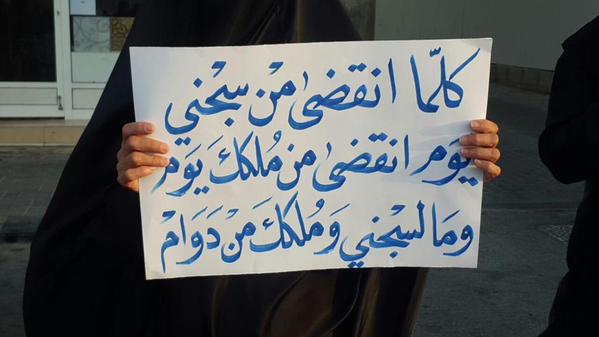 كلّما انقضىٰ منْ سجْني
يَوم انقضىٰ من مُلككَ يَومْ
وَمَا لسجْني وَمُلككَ منْ دَوَامْ